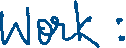 Work :